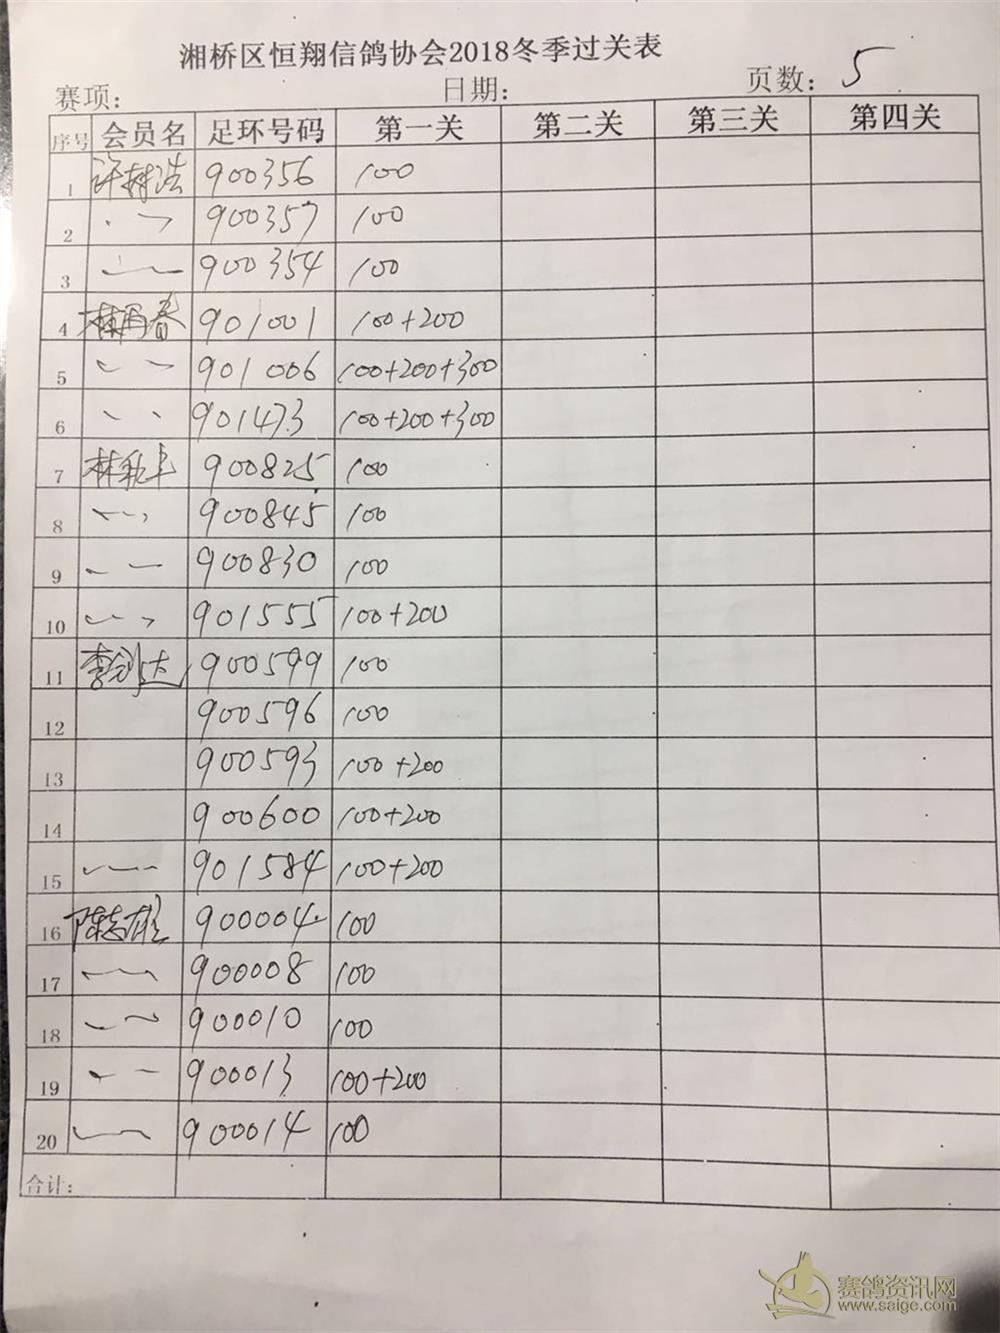 湘桥区恒翔信鸽协会2018冬季过关表
赛项： 日期： 页数：5
序号 会员名 足环号码 第一关 第二关 第三关 第四关
1 许树浩 900356 100
2 900357 100
3 900354 100
4 林再春 901001 100+200
5 901006 100+200+300
6 901473 100+200+300
7 林 900825 100
8 900845 100
9 900830 100
10 901555 100+200
11 李剑达 900599 100
12 900596 100
13 900593 100+200
14 900600 100+200
15 901584 100+200
16 陈志雄 900004 100
17 900008 100
18 900010 100
19 900013 100+200
20 900014 100
合计：
赛鸽资讯网
www.saige.com